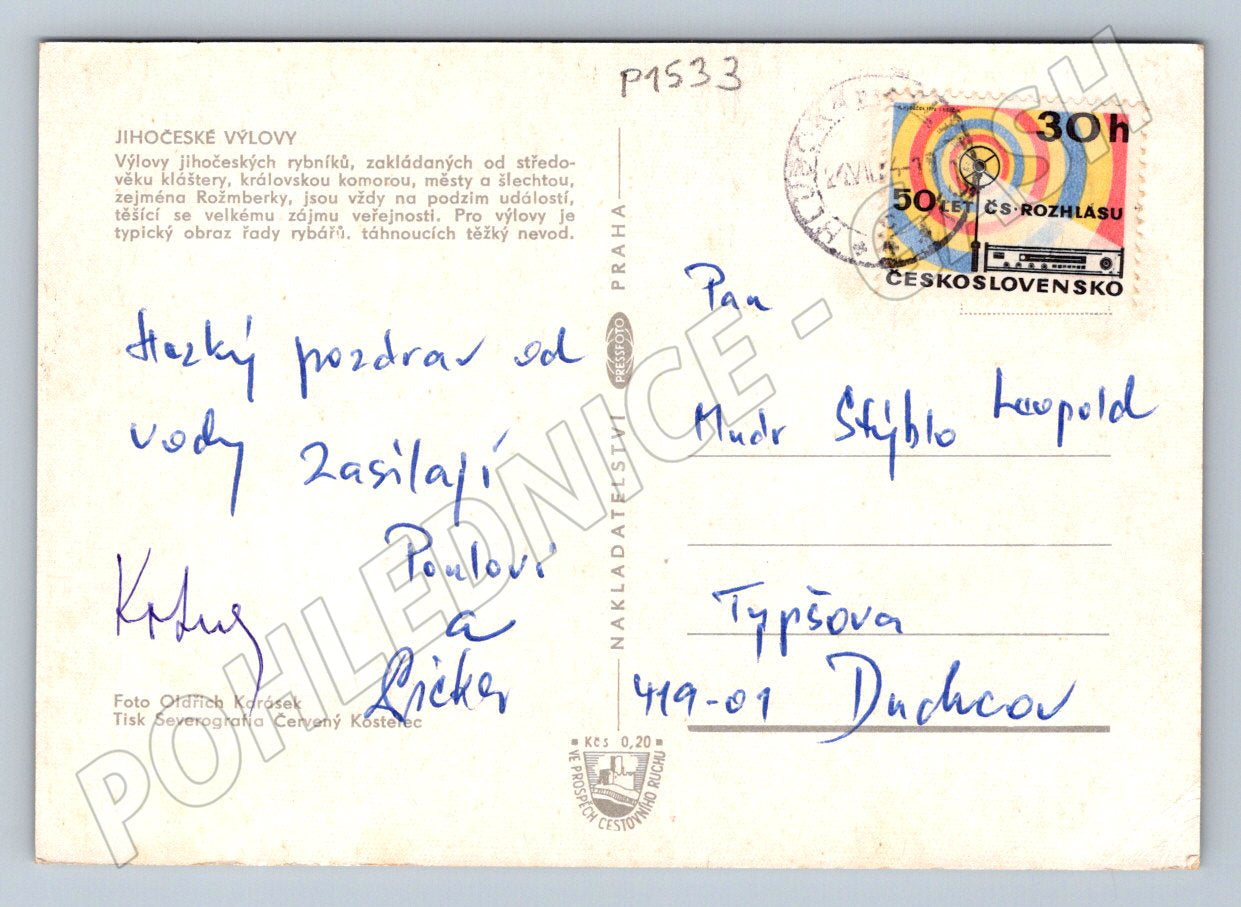 P1533
JIHOČESKÉ VÝLOVY
Výlovy jihočeských rybníků, zakládaných od středo-
věku kláštery, královskou komorou, městy a šlechtou,
zejména Rožmberky, jsou vždy na podzim událostí,
těšící se velkému zájmu veřejnosti. Pro výlovy je
typický obraz řady rybářů, táhnoucích těžký nevod.
Hezký pozdrav od
vody zasílají
Poulovi
a
Foto Oldřich Karásek
Tisk Severografia Červený Kostelec
NAKLADATELSTVÍ PRESSFOTO PRAHA
Kčs 0,20
VE PROSPĚCH CESTOVNÍHO RUCHU
30 h
50 LET ČS. ROZHLASU
ČESKOSLOVENSKO
Pan
Mudr Stýblo Leopold
Typšova
419-01 Duchcov
POHLEDNICE - CZ